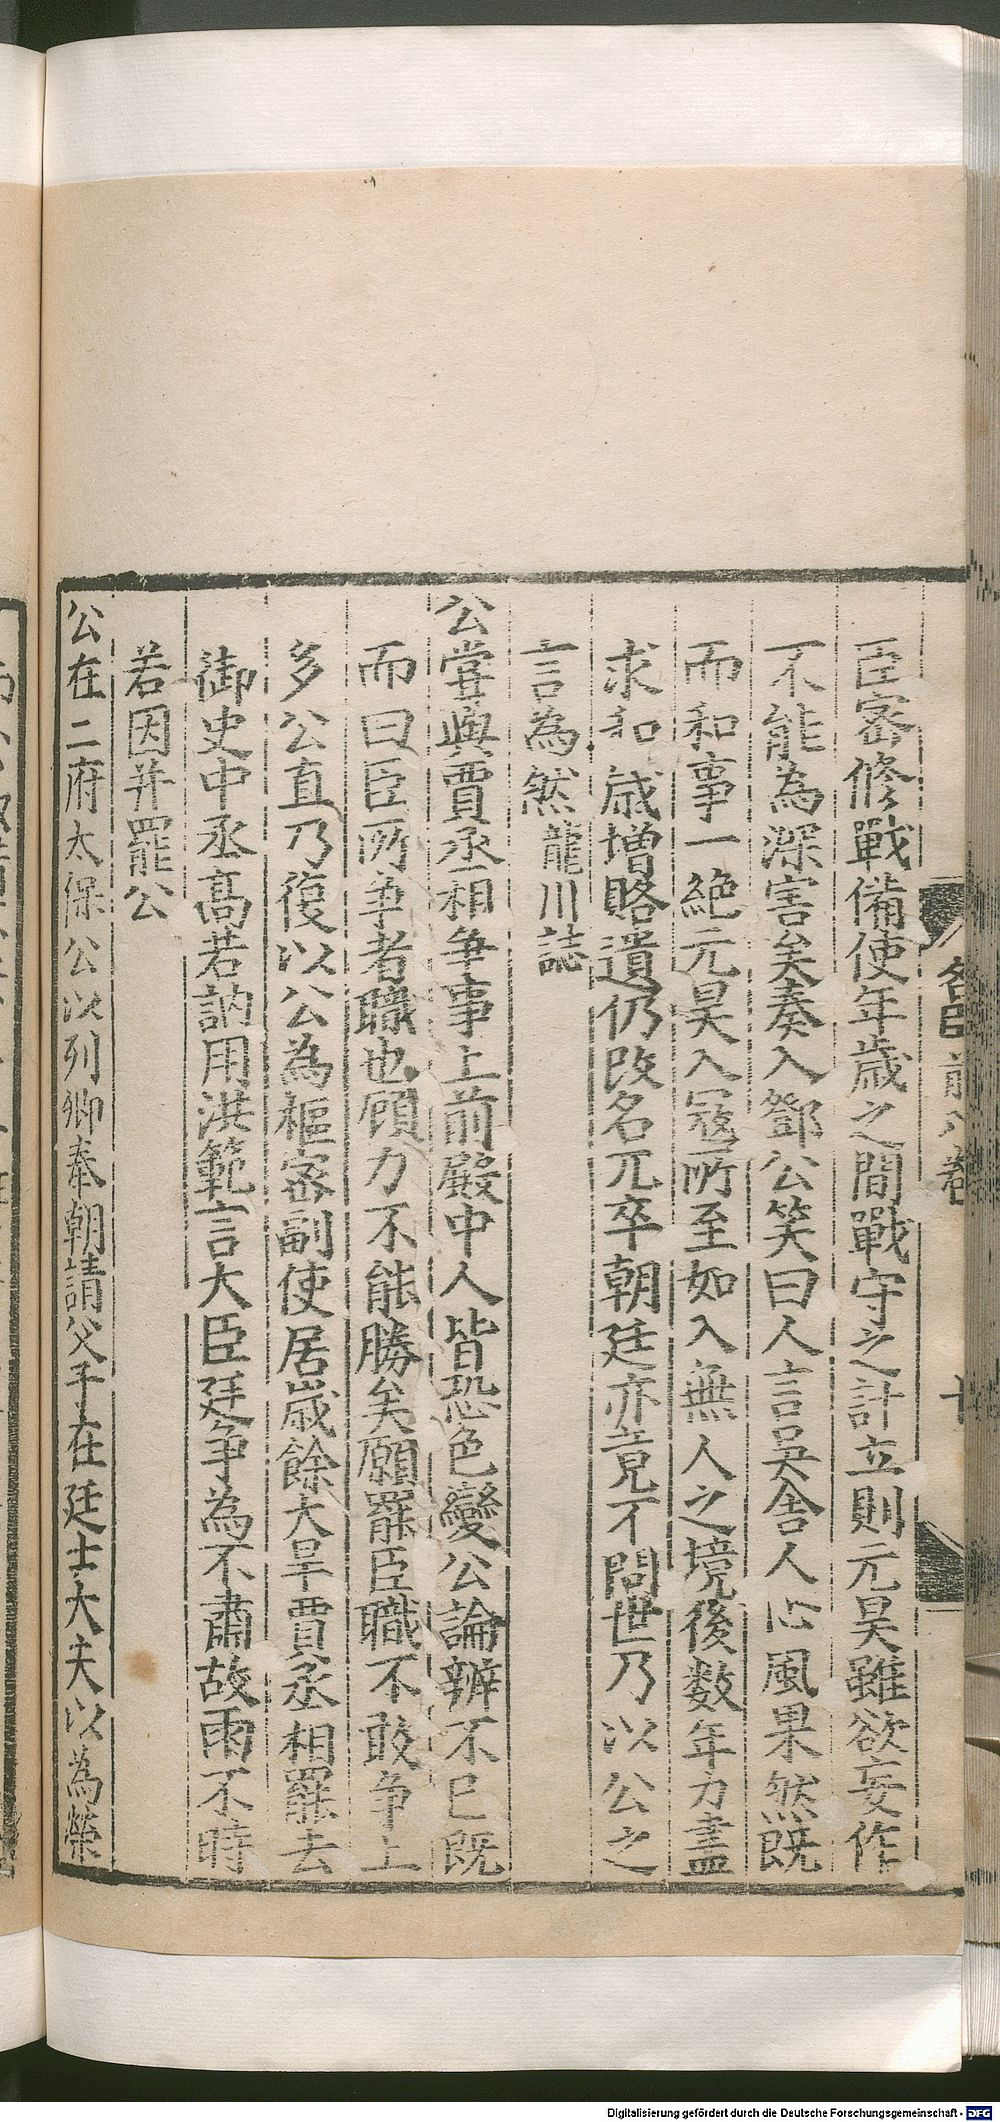 臣密修戰備使年歳之間戰守之計立則元昊雖欲妄作
不能為深害矣奏入鄧公笑曰人言吳舎人心風果然既
而和事一絶元昊入寇所至如入無人之境後数年力盡
求和歳増賂遺仍改名兀卒朝廷亦竟不問世乃以公之
言為然龍川誌
公嘗與賈丞相争事上前殿中人皆恐色變公論辨不已既
而曰臣所争者職也顧力不能勝矣願罷臣職不敢争上
多公直乃復以公為樞密副使居歳餘大旱賈丞相罷去
御史中丞髙若訥用洪範言大臣廷争為不肅故雨不時
若因并罷公
公在二府太保公以列卿奉朝請父子在廷士大夫以為榮
名臣前八卷
十
Digitalisierung gefördert durch die Deutsche Forschungsgemeinschaft - DFG